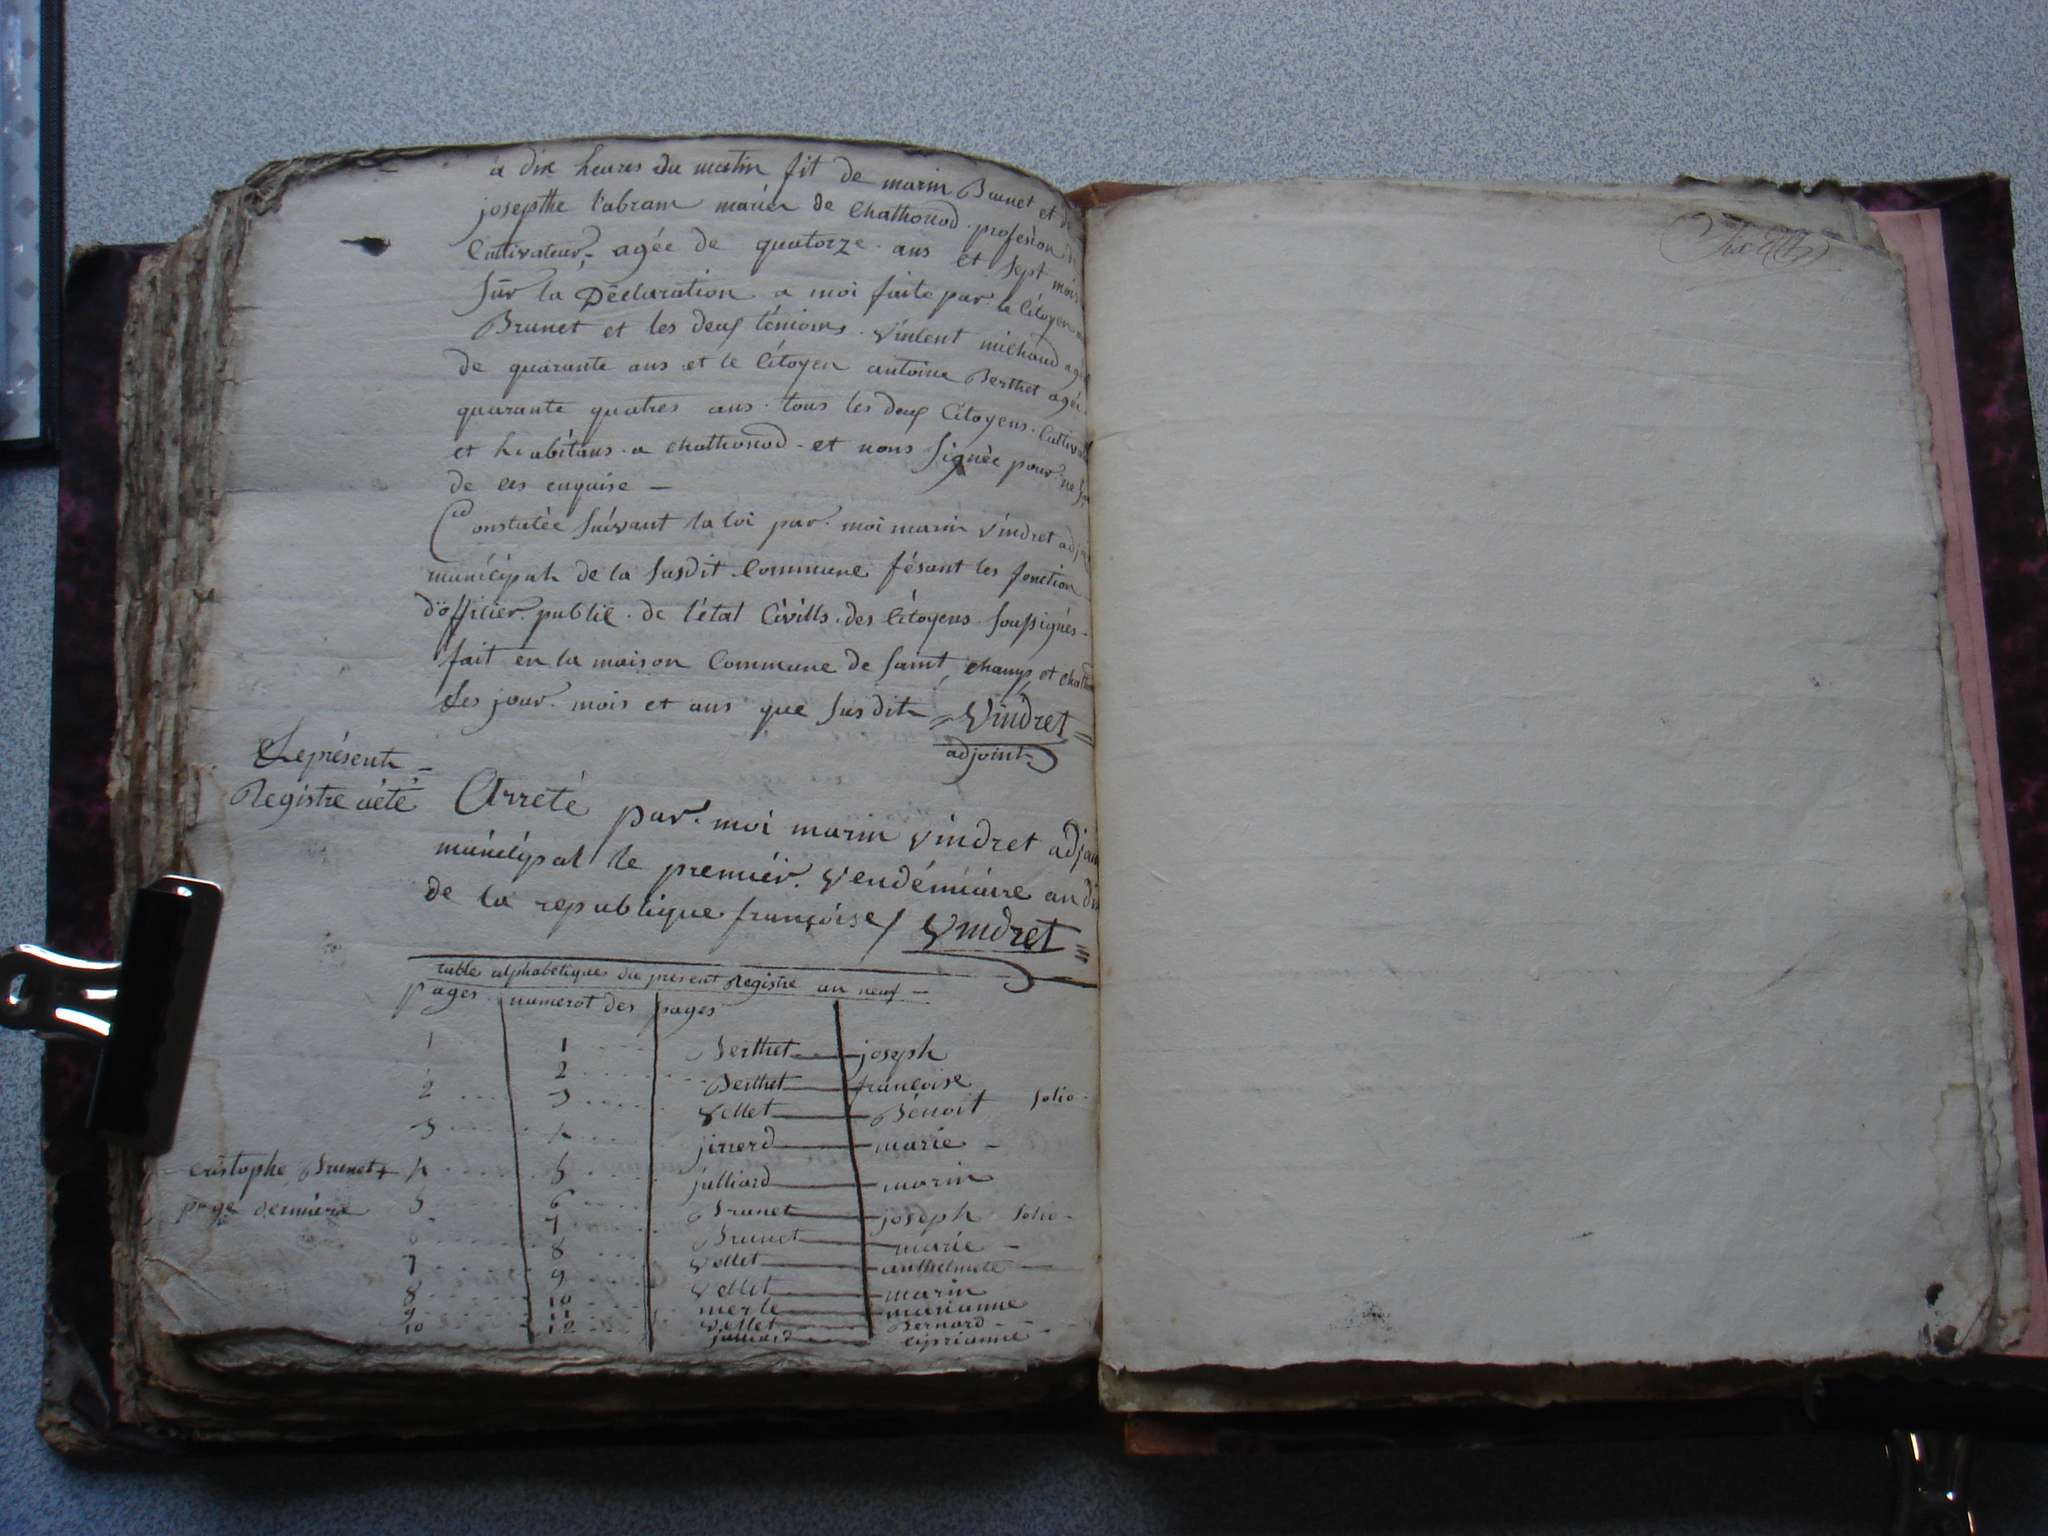 a dix heures du matin fit de marin Brunet et de
josepthe l'abram mariér de Chathonod profesion
Cultivateur, agée de quatorze ans et sept mois
sur la Déclaration a moi faite par le Citoyen
Brunet et les deuf témions vincent michaud agé
de quarante ans et le Citoyen antoine Berthet agée
quarante quatres ans tous les deuf Citoyens
et habitans a chathonod et nous signée pour ne
de ces enquise —
Constatée suivant la loi par moi marin vindret
municipal de la susdit Commune fésant les fonction
d'officier public de l'état Civills des Citoyens soussignés
fait en la maison Commune de saint champ et
Les jour mois et ans que susdit Vindret
adjoint
Leprésent
Registre aété Arreté par moi marin vindret
municipal le premiér vendémiaire an
de la republique françoise / Vindret
table alphabetiques du present Registre an neuf —
pages numerot des pages
1 1 Berthet joseph
2 Berthet francoise
2 3 vellet Bénoit folio
3 4 jirrerd marie
cristophe Brunet 4 5 julliard marin
page derniere 5 6 Brunet joseph folio
6 7 Brunet marie
7 8 vellet anthelmete
8 9 vellet marin
9 10 merle marianne
10 11 vellet Bernard
12 julliard Ciprianne